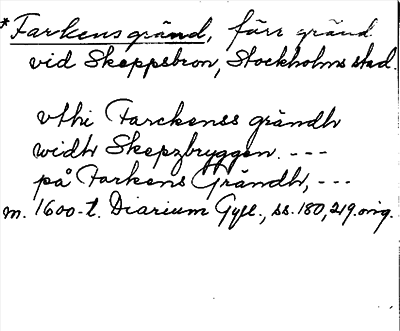 *Farkens gränd, förr gränd
vid Skeppsbron, Stockholms stad.
vthi Farckenss grändh
widh Skepzbryggen. ---
på Farkens Grändh, ---
m. 1600-t. Diarium Gyll., ss. 180, 219. orig.